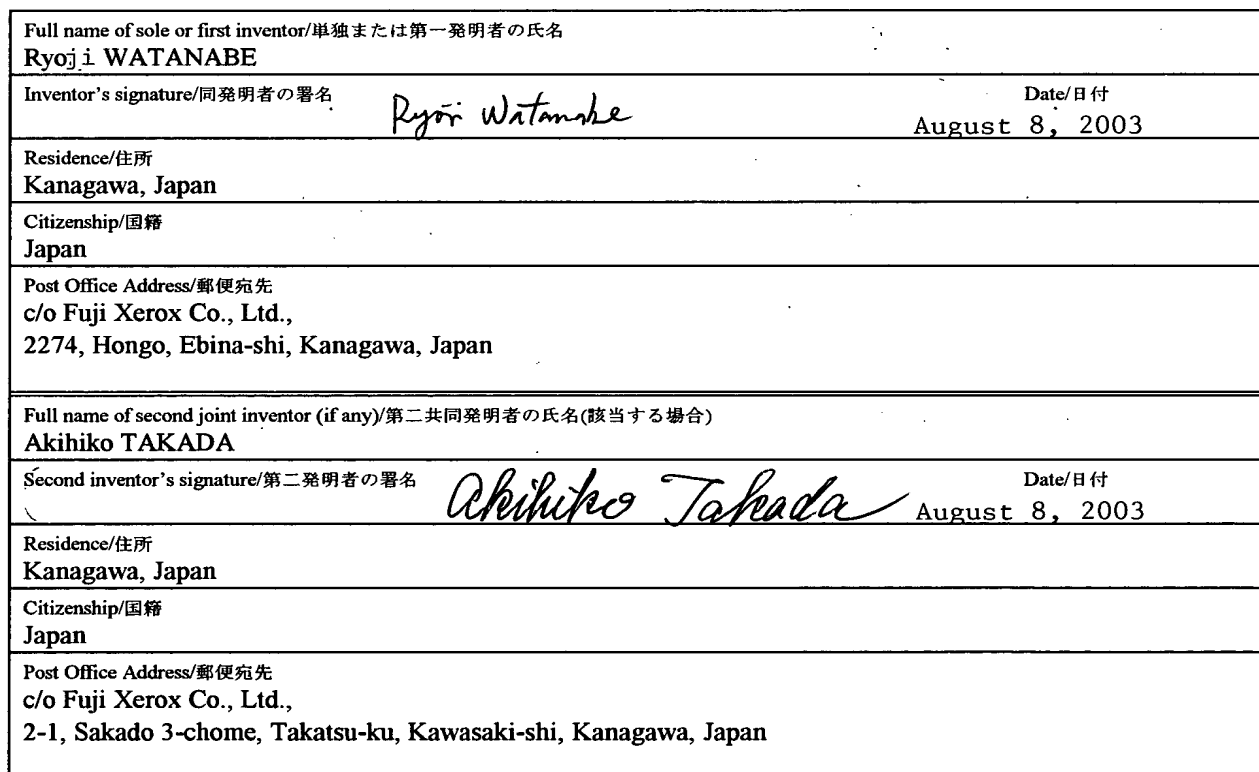 Full name of sole or first inventor/単独または第一発明者の氏名
Ryoji WATANABE
Inventor's signature/同発明者の署名 Ryoji Watanabe Date/日付
August 8, 2003
Residence/住所
Kanagawa, Japan
Citizenship/国籍
Japan
Post Office Address/郵便宛先
c/o Fuji Xerox Co., Ltd.,
2274, Hongo, Ebina-shi, Kanagawa, Japan
Full name of second joint inventor (if any)/第二共同発明者の氏名(該当する場合)
Akihiko TAKADA
Second inventor's signature/第二発明者の署名 Akihiko Takada Date/日付
August 8, 2003
Residence/住所
Kanagawa, Japan
Citizenship/国籍
Japan
Post Office Address/郵便宛先
c/o Fuji Xerox Co., Ltd.,
2-1, Sakado 3-chome, Takatsu-ku, Kawasaki-shi, Kanagawa, Japan